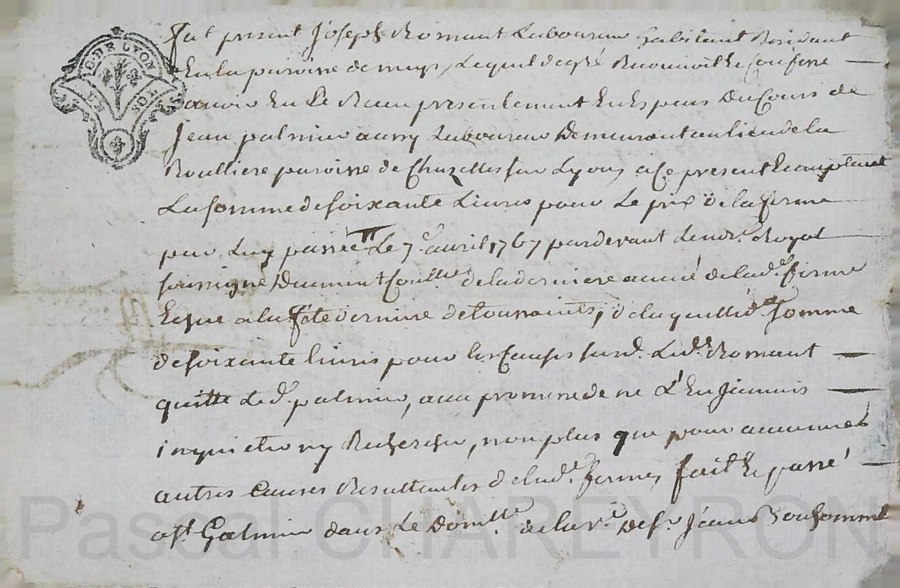 G. DE LYON
UN SOL
Fut présent Joseph Romant Laboureur habitant Residant
En la paroisse de Lequel degré Reconnoit Et Confesse
avoir Eu Et Receu presentement En Especes Du Cours de
Jean palmier aussy Laboureur Demeurant au lieu de la
Roulliere paroisse de Chazelles sur Lyon, a Ce present Et acceptant
La somme de soixante Livres pour Le prix de la ferme
par Luy passée Le 7e avril 1767 pardevant Le nore Royal
soussigné Duement Conllé de la derniere année de lade ferme
Echue a la fete derniere de toussaints, de laquelle de somme
de soixante livres pour les Causes susd. Led. Romant
quitte Led. palmier, avec promesse de ne L'En Jamais
inquietter ny Rechercher, non plus que pour aucunes
autres Causes Resultantes de lade ferme, fait Et passé
a st Galmier dans Le Domlle de la ve De sr Jean Bonhomme
Pascal CHAREYRON